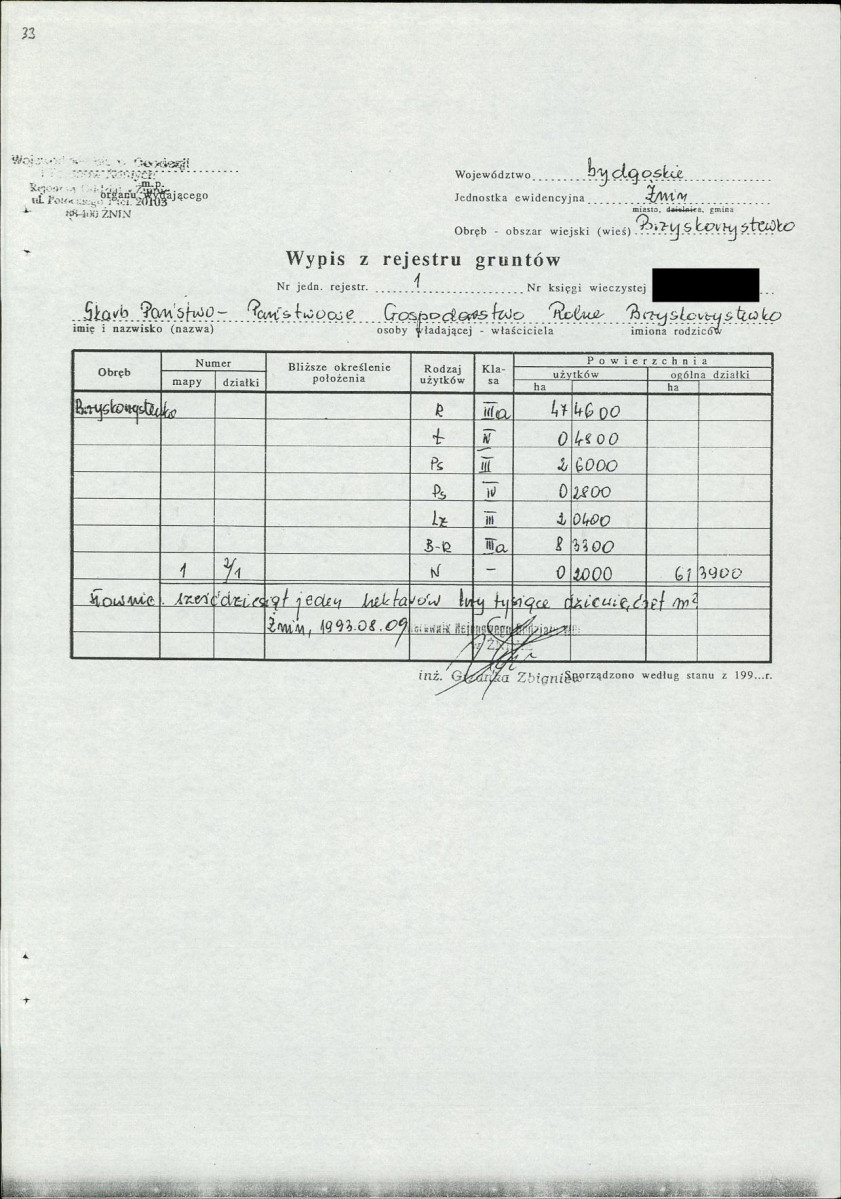 33
Geodezji
m.p.
organu wydającego
88-400 ŻNIN
Województwo bydgoskie
Jednostka ewidencyjna Żnin
miasto, dzielnica, gmina
Obręb - obszar wiejski (wieś) Brzyskorzystewko
Wypis z rejestru gruntów
Nr jedn. rejestr. 1 Nr księgi wieczystej
Skarb Państwa - Państwowe Gospodarstwo Rolne Brzyskorzystewko
imię i nazwisko (nazwa) osoby władającej - właściciela imiona rodziców
Obręb Numer Bliższe określenie położenia Rodzaj użytków Kla-sa Powierzchnia
mapy działki użytków ogólna działki
ha ha
Brzyskorzystewko R IIIa 47 4600
Ł IV 0 4800
Ps III 2 6000
Ps IV 0 2800
Lz III 2 0400
B-R IIIa 8 3300
1 2/1 N - 0 2000 61 3900
Słownie: sześćdziesiąt jeden hektarów trzy tysiące dziewięćset m²
Żnin, 1993.08.09
inż. Zbigniew Sporządzono według stanu z 199...r.